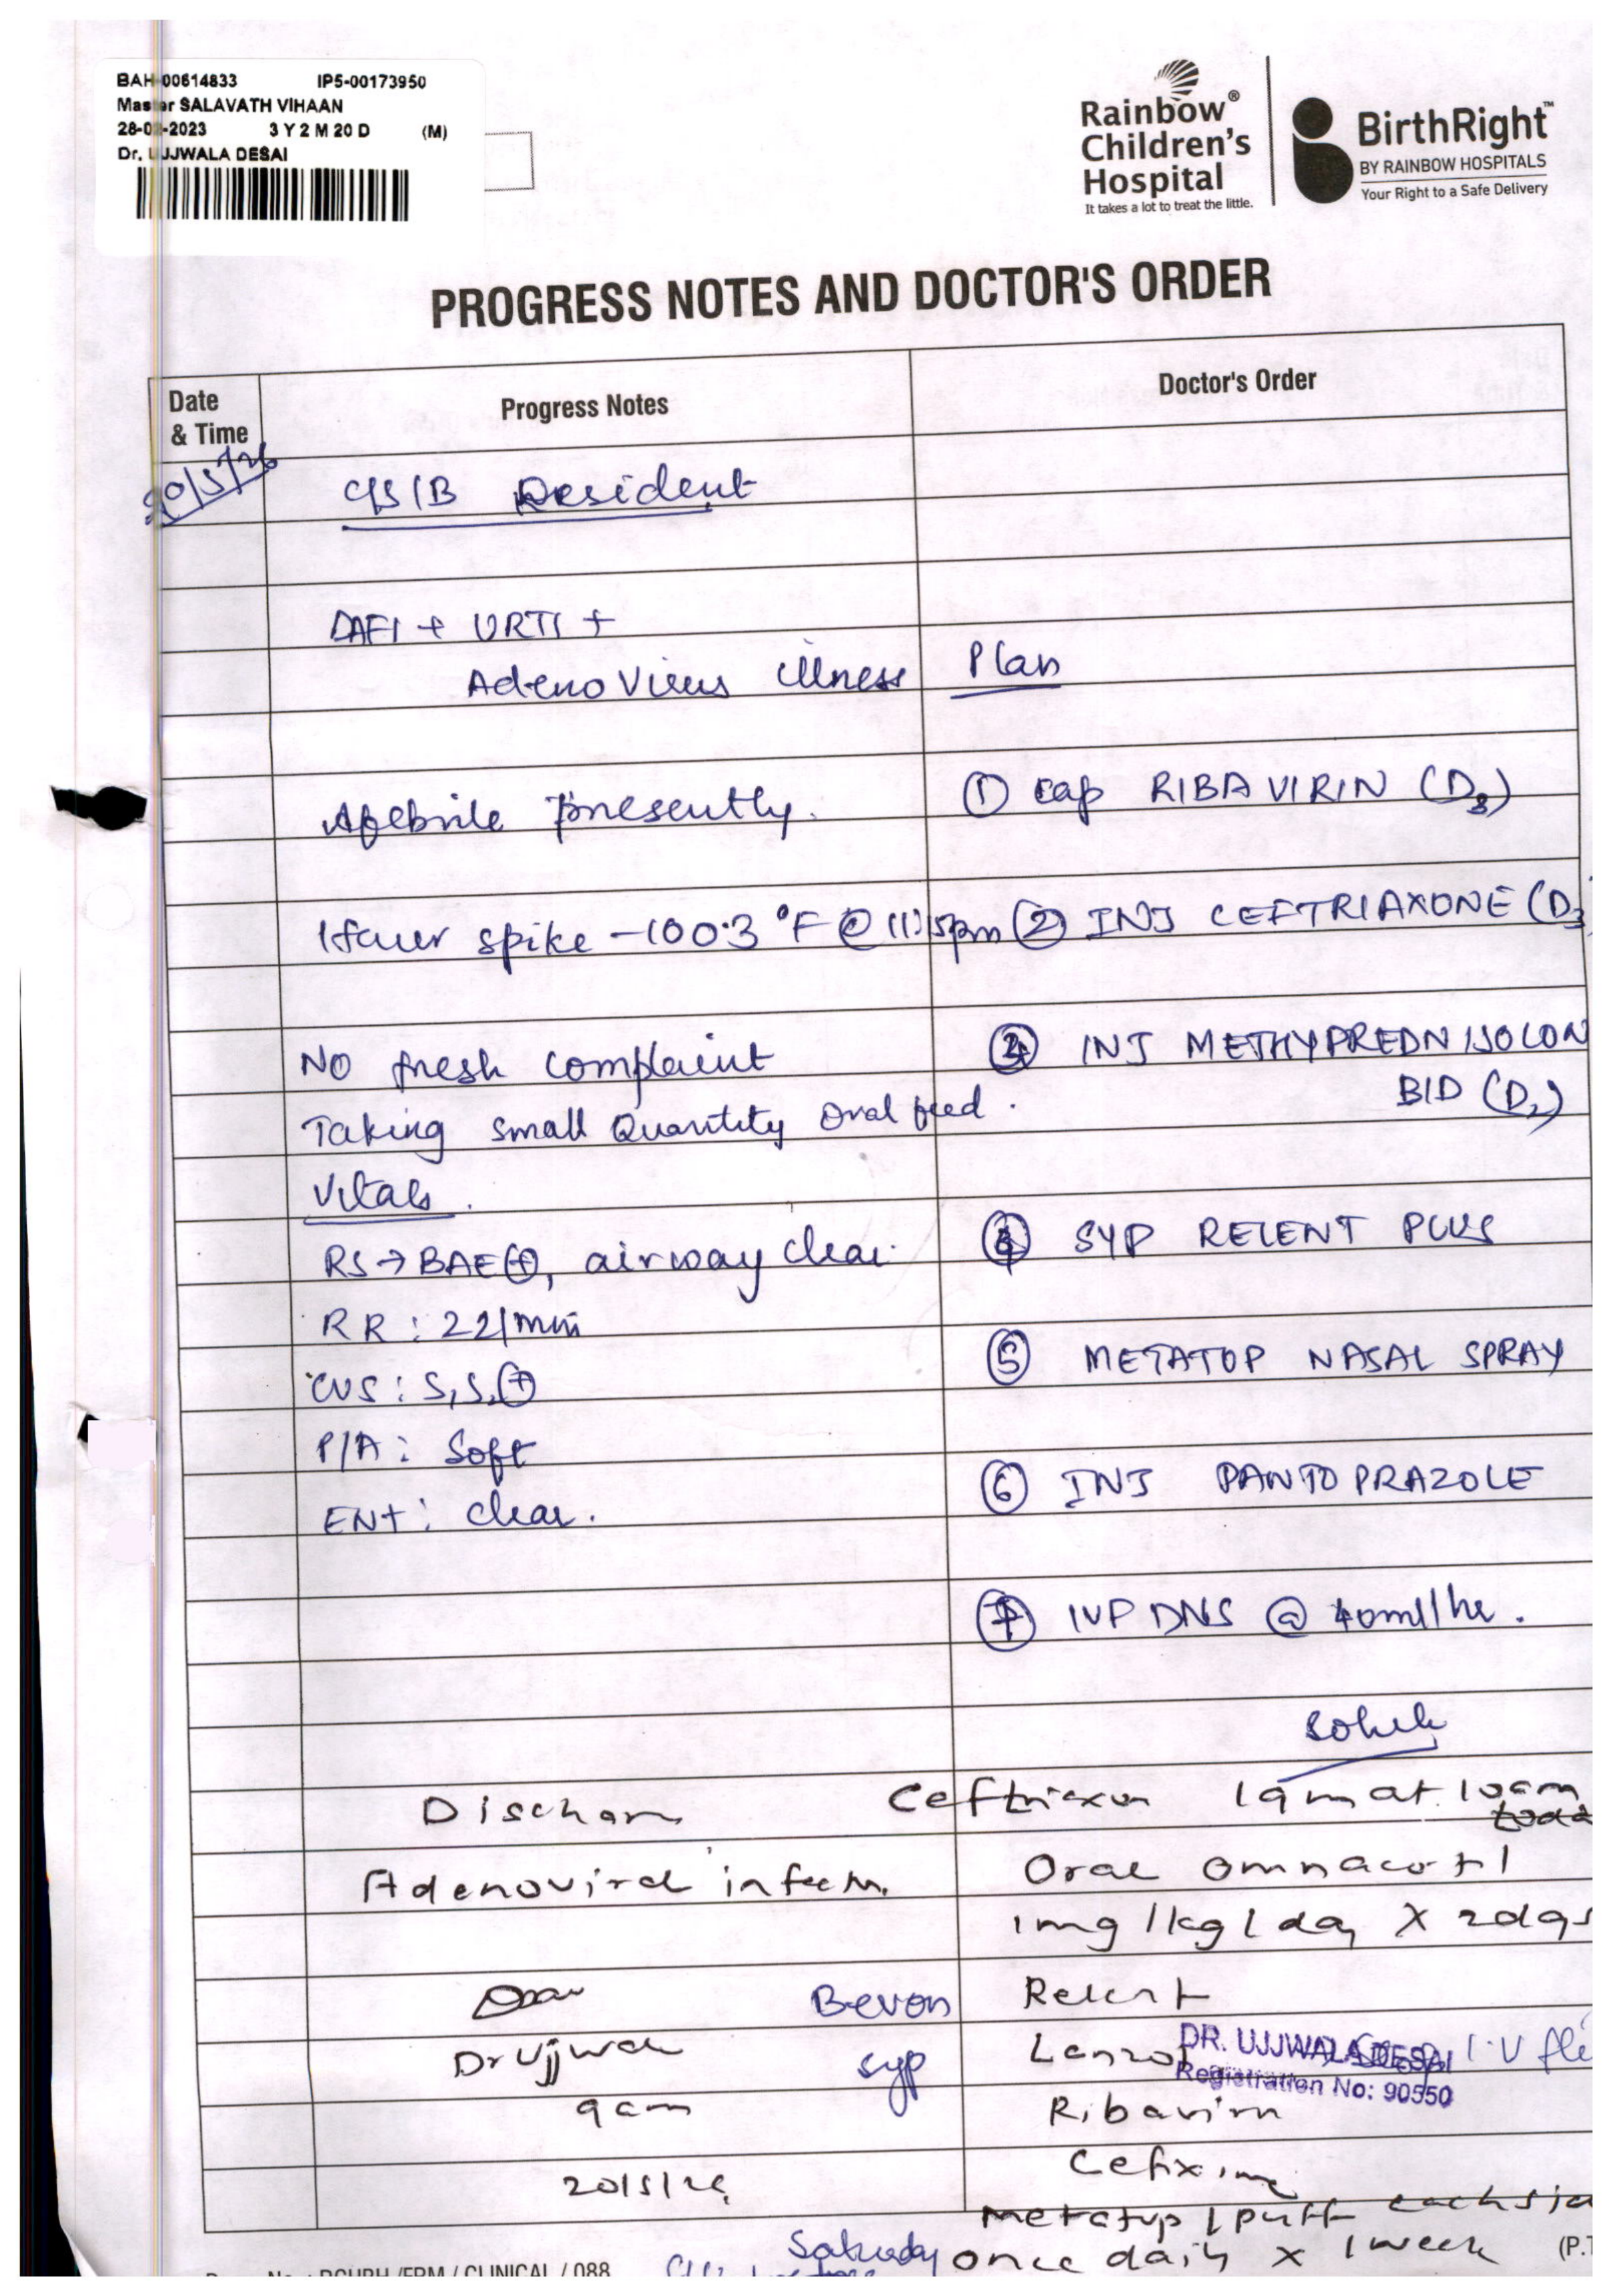 BAH-00614833 IP5-00173950
Master SALAVATH VIHAAN
28-02-2023 3 Y 2 M 20 D (M)
Dr. UJJWALA DESAI
Rainbow®
Children's
Hospital
It takes a lot to treat the little.
BirthRight™
BY RAINBOW HOSPITALS
Your Right to a Safe Delivery
PROGRESS NOTES AND DOCTOR'S ORDER
Date & Time
Progress Notes
Doctor's Order
20/5/26
C/S/B Resident
DAFI + URTI +
AdenoVirus illness
Plan
Afebrile presently.
① cap RIBAVIRIN (D3)
1 fever spike - 100.3 °F @ 11:15pm
② INJ CEFTRIAXONE (D3
No fresh complaint
③ INJ METHYPREDNISOLON
BID (D2)
Taking small Quantity oral feed.
Vitals.
RS → BAE⊕, airway clear.
④ SYP RELENT PLUS
RR : 22/min
⑤ METATOP NASAL SPRAY
CVS : S1S2⊕
P/A : Soft
⑥ INJ PANTOPRAZOLE
ENT : clear.
⑦ IVF DNS @ 40ml/hr.
Ceftriaxon 1gm at 10am
Adenoviral infectn.
Oral omnacortil
1mg/kg/day X 2days
Bevon
syp
Relent
Dr Ujjwala
DR. UJJWALA DESAI
Registration No: 90550
9am
Ribavirin
20/5/26
Cefixime
Metatop 1 puff each
once daily x 1 week
Saturday
(P.T
/ CLINICAL / 088